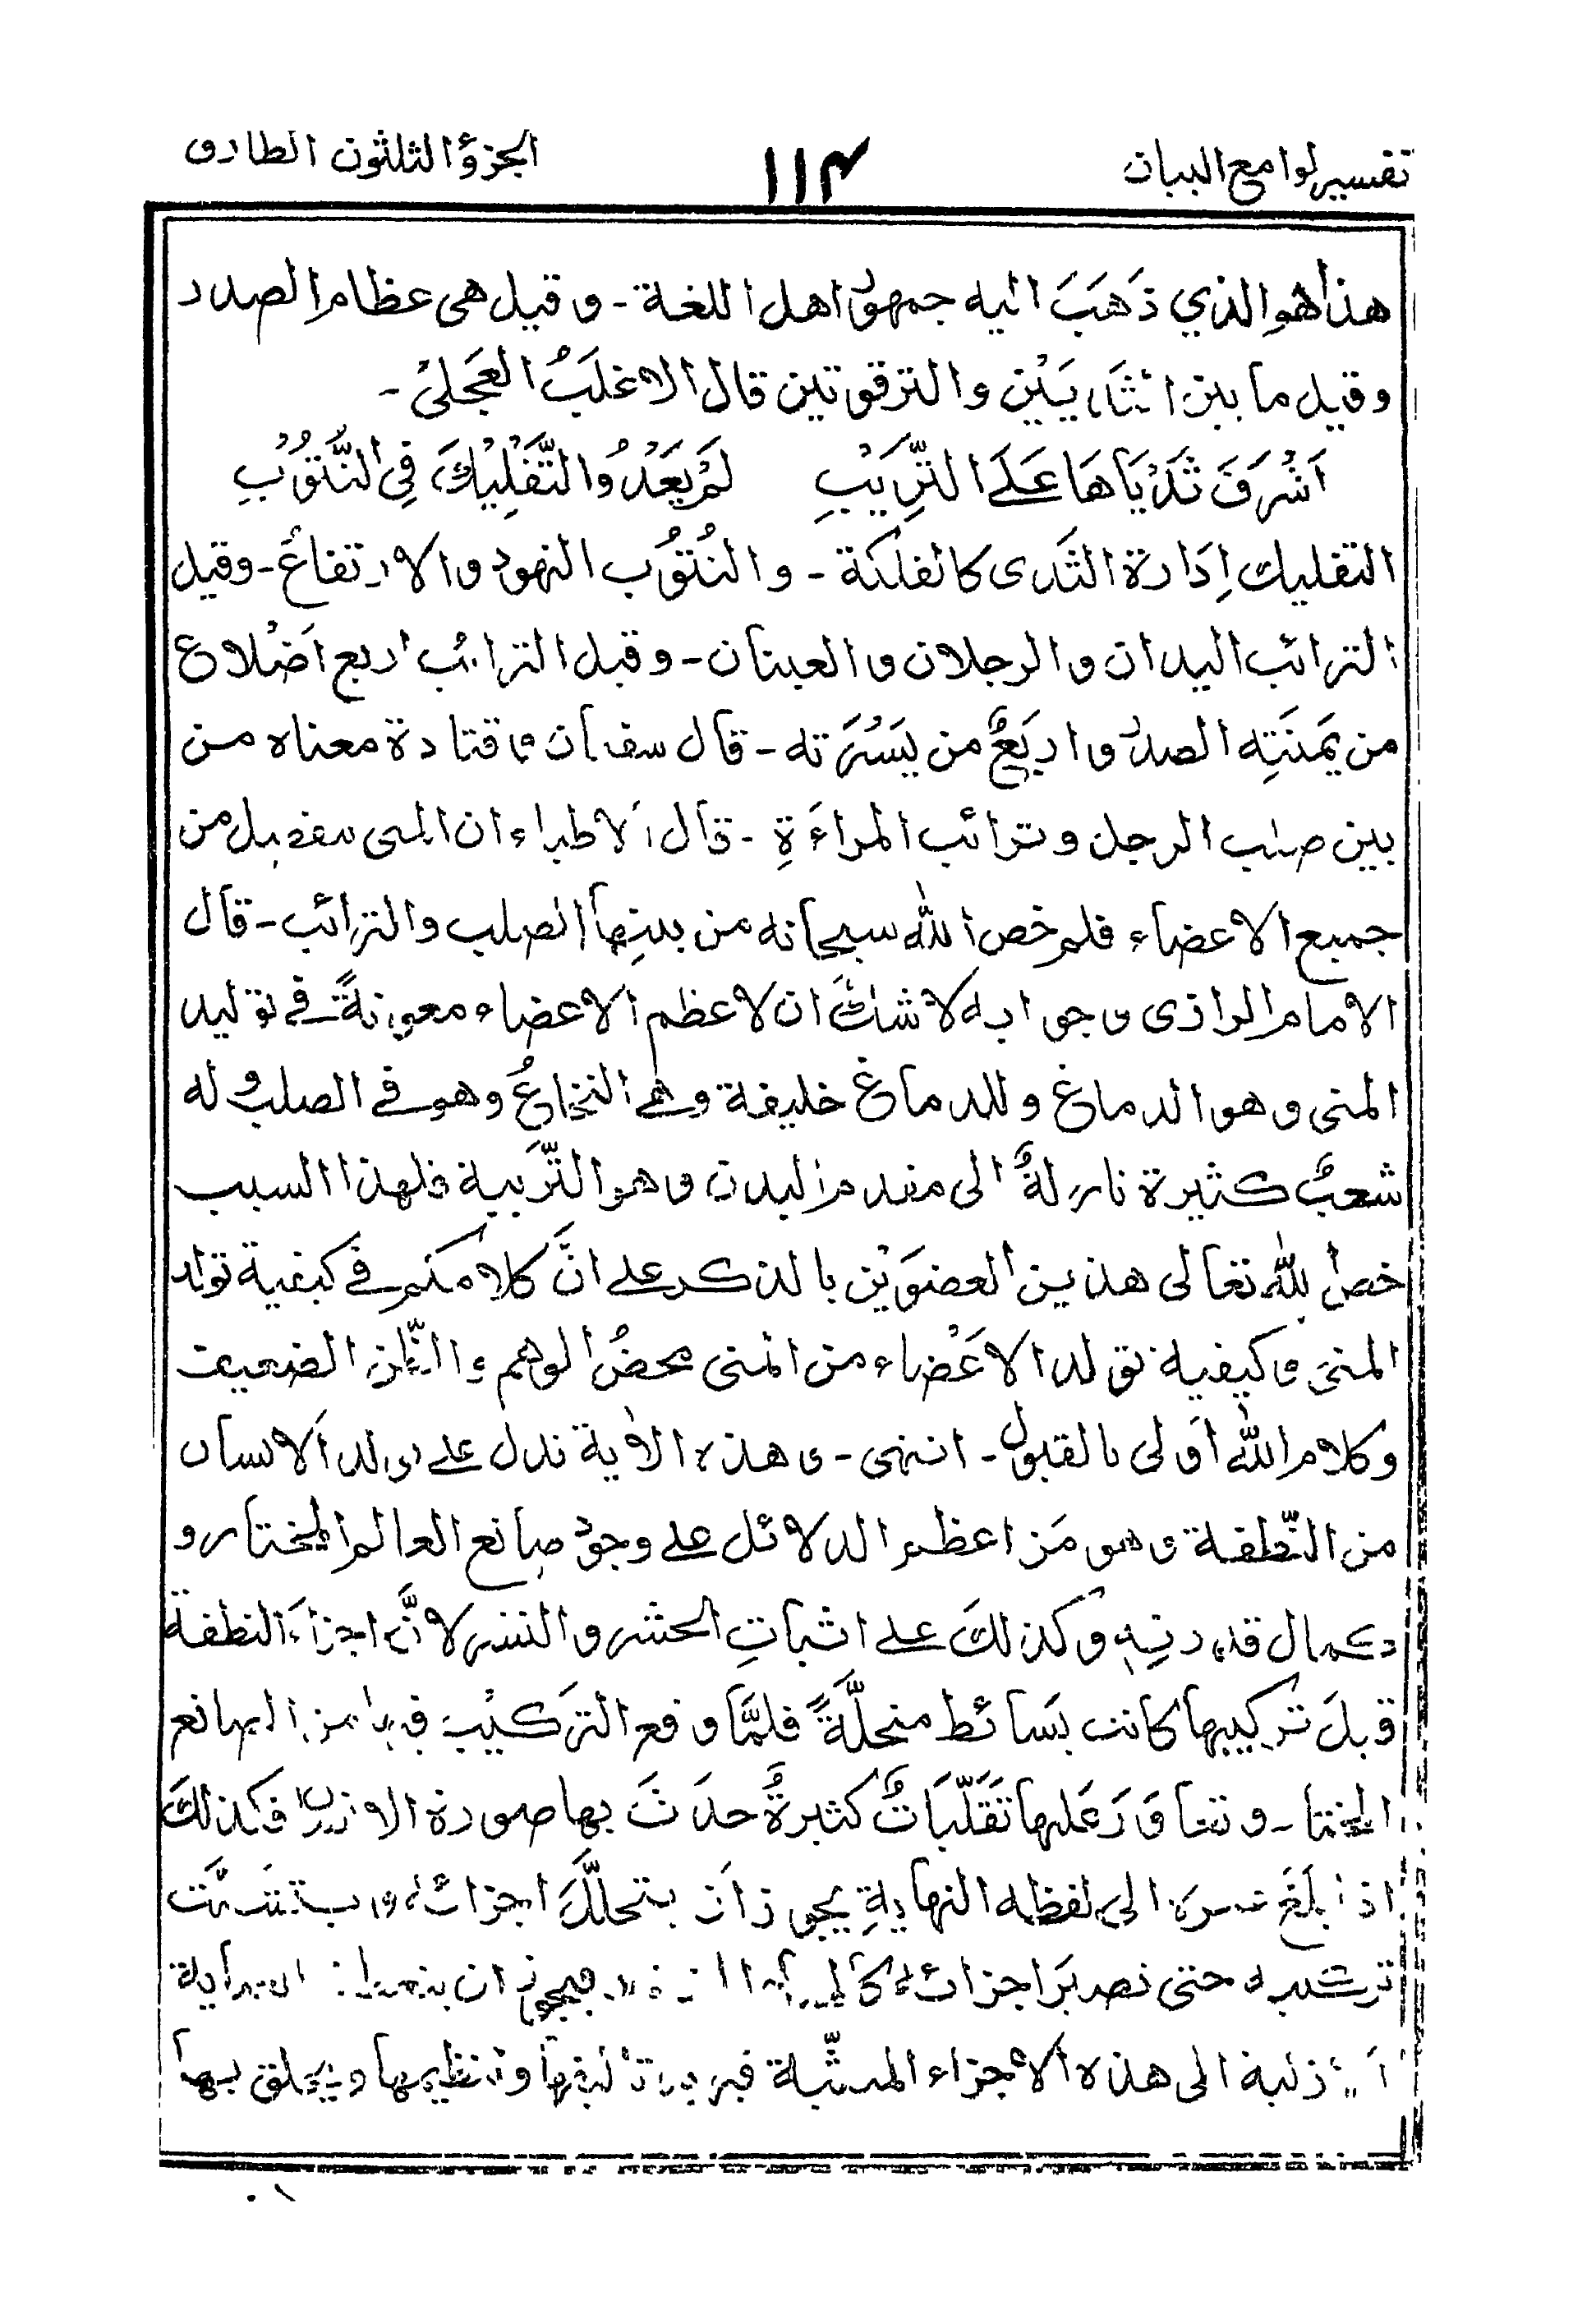 تفسير لوامع البيان ١١٤ الجزؤ الثلثون الطارق
هذا هو الذي ذَهَبَ اليه جمهورُ اهل اللغة - و قيل هى عظام الصدر
و قيل ما بين الثَّديَيْن والترقوتين قال الاغلَبُ العَجَلىْ -
اَشْرَفَ ثَدْيَاهَا عَلَے التَّرِيَبْ لَمْ يَعْدُوَا لتَّفْلِيْكَ فِي النُّتُوُبِ
التفليك اِدَارة الثَدى كالفلكة - و النُتوُب النهود و الارتفاعَ - وقيل
الترائب اليدان و الرجلان و العينان - و قيل الترائب اربع اَضْلاع
من يَمنَتِه الصدر و اربَعٌ من يَسْرَته - قال سفيان و قتادة معناه من
بين صلب الرجل و ترائب المراءَةِ - قال الاطباء ان المنى ينفصل من
جميع الاعضاء فلم خص الله سبحانه من بينها الصلب والترائب - قال
الامام الرازى و جوابه لا شكَّ ان لاعظم الاعضاء معونةً فے توليد
المنى و هو الدماغ و للدماغ خليفة و هى النخاعُ وهو فے الصلب و له
شعبٌ كثيرة نازلةٌ الى مقدم البدن و هو التَّريبة فلهذا السبب
خص الله تعالى هذين العضوَيْن بالذكر على انَّ كلامكم فے كيفية تولد
المنى و كيفية تولد الاعْضاء من المنى محضُ الوهم و الظَّن الضعيف
و كلام الله اولى بالقبول - انتهى - و هذه الآية تدل علے تولد الانسان
من النُّطفة و هو مَن اعظم الدلائل علے وجود صانع العالم المختار و
كمال قدرتِهٖ و كذلكَ علے اثباتِ الحشر و النشر لانَّ اجزاءَ النطفة
قبلَ تركيبها كانت بَسائط منحلَّةً فلمَّا وقع التركيْب فيها من الصانع
المختار و تتاوَرَ عَليها تَقَلّبَاتٌ كثيرةٌ حدَثَ بها صورة الانسان فكذلكَ
اذا بلَغَ الى لفظه النهايةِ يجوز اَن يتحلَّلَ اجزائه و يتشتَّت
تركيبه حتى تصيرَ اجزائه فيجوز ان
الى هذه الاجزاء فيريد تاليفها و تنظيمها و يخلق بها